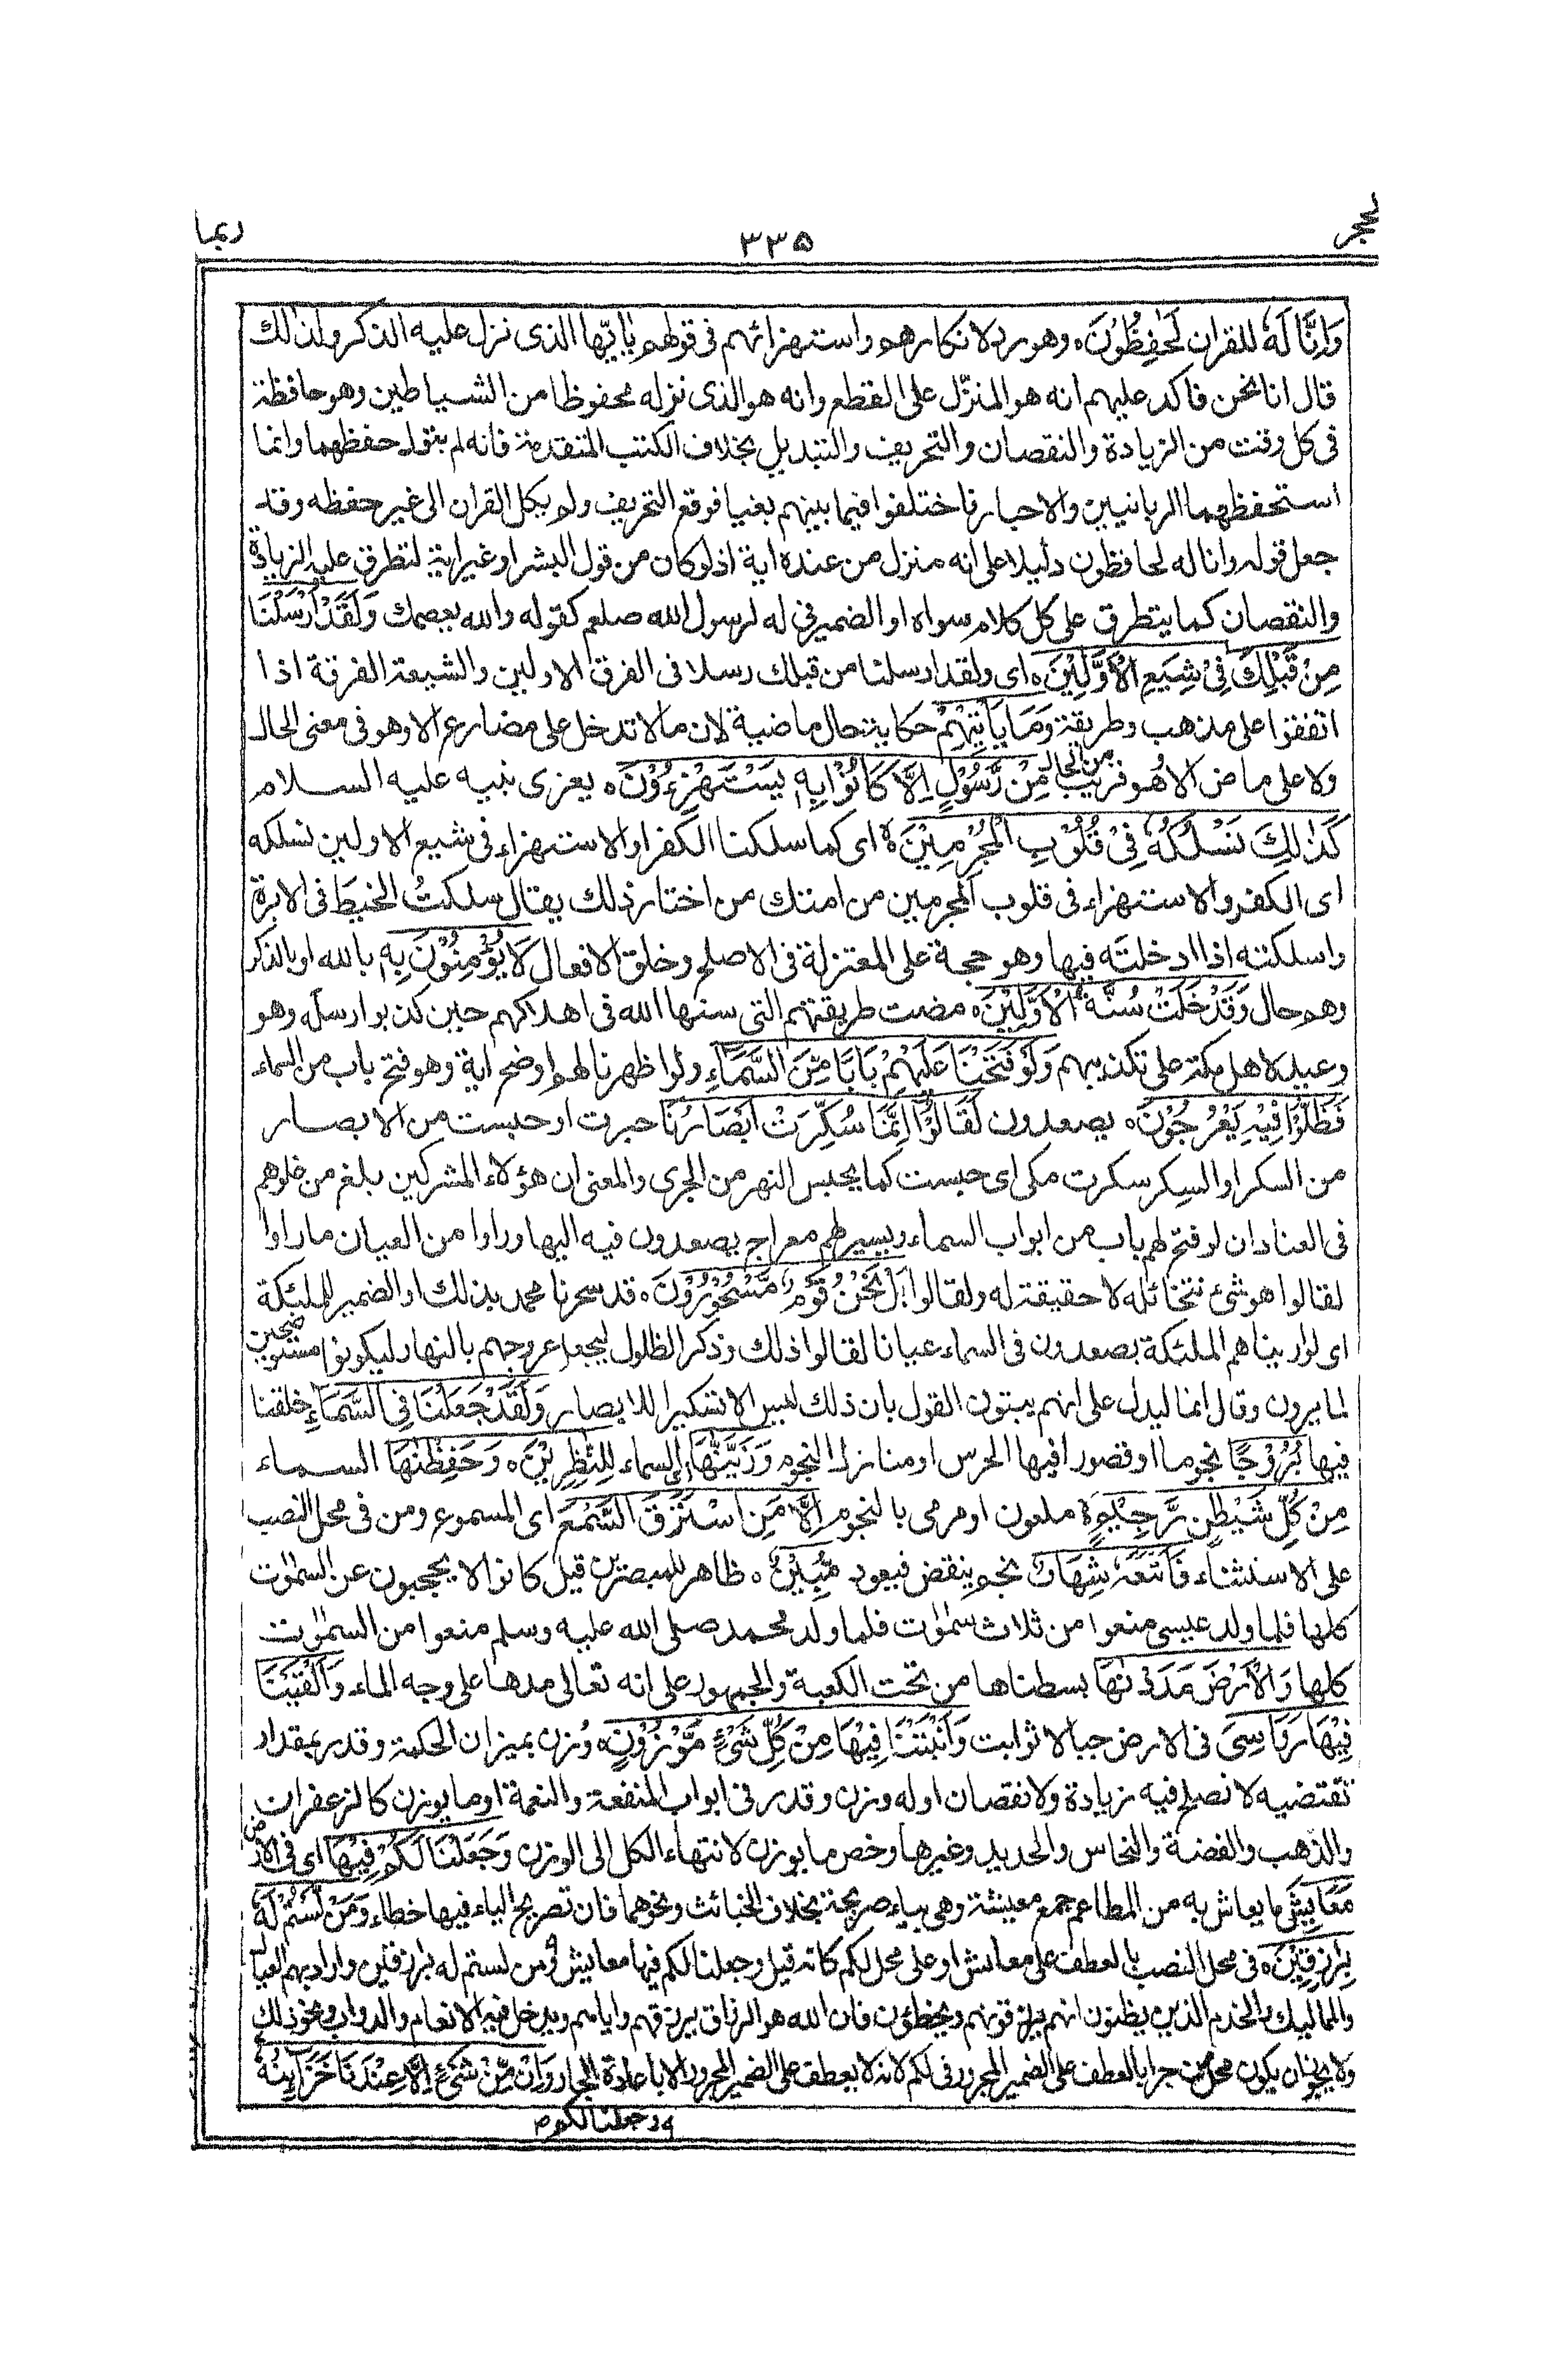 الحجر ٣٣٥ ربما
وَاِنَّا لَهٗ للقران لَحٰفِظُوْنَ ه وهو رد لانكارهم واستهزائهم فى قولهم يا ايها الذى نزل عليه الذكر ولذلك
قال انا نحن فاكد عليهم انه هو المنزّل على القطع وانه هو الذى نزله محفوظا من الشياطين وهو حافظة
فى كل وقت من الزيادة والنقصان والتحريف والتبديل بخلاف الكتب المتقدمة فانه لم يتول حفظهما وانما
استحفظهما الربانيين والاحبار فاختلفوا فيما بينهم بغيا فوقع التحريف ولم يكل القران الى غير حفظه وقد
جعل قوله وانا له لحافظون دليلا على انه منزل من عنده اية اذ لو كان من قول البشر او غير اية لتطرق عليه الزيادة
والنقصان كما يتطرق على كل كلام سواه او الضمير فى له لرسول الله صلعم كقوله والله يعصمك وَلَقَدْ اَرْسَلْنَا
مِنْ قَبْلِكَ فِىْ شِيَعِ الْاَوَّلِيْنَ ه اى ولقد ارسلنا من قبلك رسلا فى الفرق الاولين والشيعة الفرقة اذا
اتفقوا على مذهب وطريقة وَمَا يَاْتِيْهِمْ حكاية حال ماضية لان ما لا تدخل على مضارع الا وهو فى معنى الحال
ولا على ماض الا هو قريب من الحال مِنْ رَّسُوْلٍ اِلَّا كَانُوْا بِهٖ يَسْتَهْزِءُوْنَ ه يعزى نبيه عليه السلام
كَذٰلِكَ نَسْلُكُهٗ فِىْ قُلُوْبِ الْمُجْرِمِيْنَ ه اى كما سلكنا الكفر او الاستهزاء فى شيع الاولين نسلكه
اى الكفر والاستهزاء فى قلوب المجرمين من امتك من اختار ذلك يقال سلكتُ الخيطَ فى الابرة
واسلكته اذا ادخلتَه فيها وهو حجة على المعتزلة فى الاصلح وخلق الافعال لَا يُؤْمِنُوْنَ بِهٖ بالله او بالذكر
وهو حال وَقَدْ خَلَتْ سُنَّةُ الْاَوَّلِيْنَ ه مضت طريقتهم التى سنها الله فى اهلاكهم حين كذبوا رسله وهو
وعيد لاهل مكة على تكذيبهم وَلَوْ فَتَحْنَا عَلَيْهِمْ بَابًا مِّنَ السَّمَاءِ ولو اظهرنا لهم اوضح اية وهو فتح باب من السماء
فَظَلُّوْا فِيْهِ يَعْرُجُوْنَ ه يصعدون لَقَالُوْا اِنَّمَا سُكِّرَتْ اَبْصَارُنَا حيرت او حبست من الابصار
من السكر او السِكر سكرت مكى اى حبست كما يحبس النهر من الجرى والمعنى ان هؤلاء المشركين بلغ من غلوهم
فى العناد ان لو فتح لهم باب من ابواب السماء ويسير لهم معراج يصعدون فيه اليها وراوا من العيان ما راوا
لقالوا هو شئ نتخائله لا حقيقة له ولقالوا بَلْ نَحْنُ قَوْمٌ مَّسْحُوْرُوْنَ ه قد سحرنا محمد بذلك او الضمير للملئكة
اى لو اريناهم الملئكة يصعدون فى السماء عيانا لقالوا ذلك وذكر الظلول ليجعل عروجهم بالنهار ليكونوا مستوضحين
لما يرون وقال انما ليدل على انهم يبتون القول بان ذلك ليس الا تسكيرا للابصار وَلَقَدْ جَعَلْنَا فِى السَّمَاءِ خلقنا
فيها بُرُوْجًا نجوما او قصورا فيها الحرس او منازل النجوم وَزَيَّنّٰهَا اى السماء لِلنّٰظِرِيْنَ ه وَحَفِظْنٰهَا السماء
مِنْ كُلِّ شَيْطٰنٍ رَّجِيْمٍ ه ملعون او مرمى بالنجوم اِلَّا مَنِ اسْتَرَقَ السَّمْعَ اى المسموع ومن فى محل النصب
على الاستثناء فَاَتْبَعَهٗ شِهَابٌ نجم ينقض فيعود مُّبِيْنٌ ه ظاهر للمبصرين قيل كانوا لا يحجبون عن السمٰوٰت
كلها فلما ولد عيسى منعوا من ثلاث سمٰوٰت فلما ولد محمد صلى الله عليه وسلم منعوا من السمٰوٰت
كلها وَالْاَرْضَ مَدَدْنٰهَا بسطناها من تحت الكعبة والجمهور على انه تعالى مدها على وجه الماء وَاَلْقَيْنَا
فِيْهَا رَوَاسِىَ فى الارض جبالا ثوابت وَاَنْبَتْنَا فِيْهَا مِنْ كُلِّ شَىْءٍ مَّوْزُوْنٍ ه وُزن بميزان الحكمة وقدر بمقدار
تقتضيه لا تصلح فيه زيادة ولا نقصان او له وزن وقدر فى ابواب المنفعة والنعمة او ما يوزن كالزعفران
والذهب والفضة والنحاس والحديد وغيرها وخص ما يوزن لانتهاء الكل الى الوزن وَجَعَلْنَا لَكُمْ فِيْهَا اى فى الارض
مَعَايِشَ ما يعاش به من المطاعم جمع معيشة وهى بياء صريحة بخلاف الخبائث ونحوهما فان تصريح الياء فيها خطاء وَمَنْ لَّسْتُمْ لَهٗ
بِرٰزِقِيْنَ ه فى محل النصب بالعطف على معايش او على محل لكم كانه قيل وجعلنا لكم فيها معايش ومن لستم له برازقين واراد بهم العيال
والمماليك والخدم الذين يظنون انهم يرزقونهم ويخطئون فان الله هو الرزاق يرزقهم واياهم ويدخل فيه الانعام والدواب ونحو ذلك
ولا يجوز ان يكون محل من جرا بالعطف على الضمير المجرور فى لكم لانه لا يعطف على الضمير المجرور الا باعادة الجار وَاِنْ مِّنْ شَىْءٍ اِلَّا عِنْدَنَا خَزَآئِنُهٗ
وجعلنا لكم